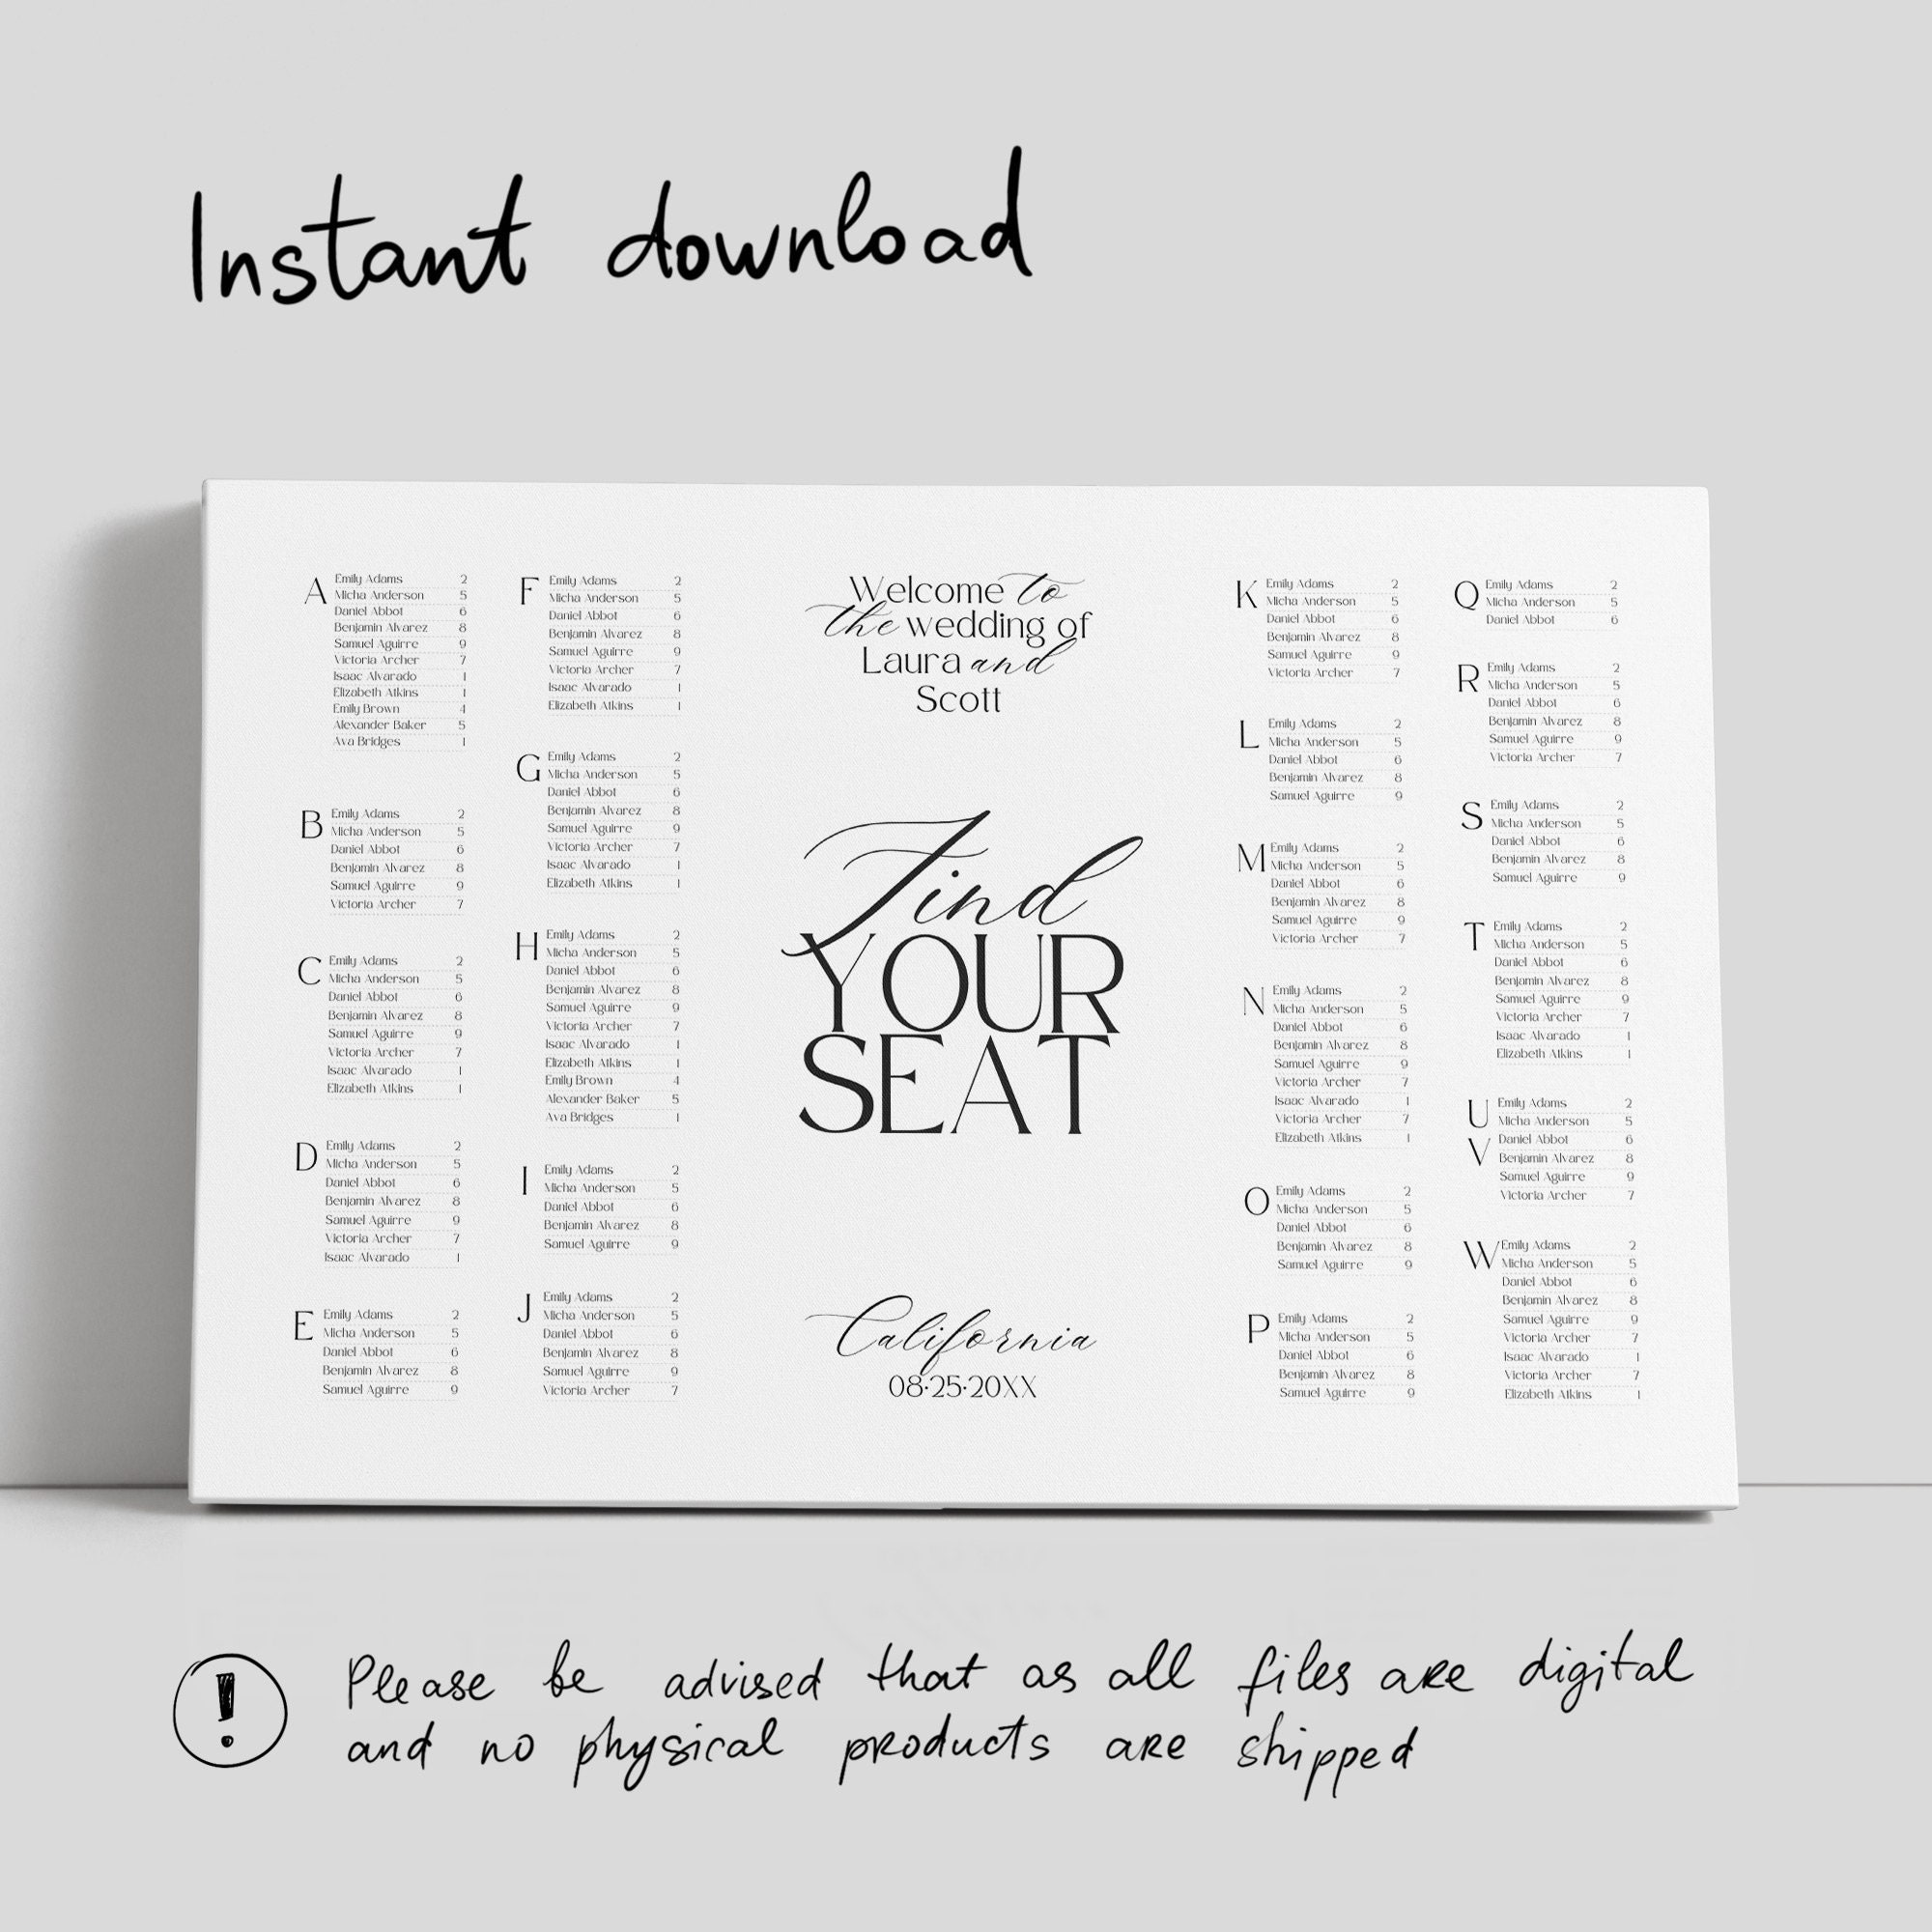 Instant download
A
Emily Adams 2
Micha Anderson 5
Daniel Abbot 6
Benjamin Alvarez 8
Samuel Aguirre 9
Victoria Archer 7
Isaac Alvarado 1
Elizabeth Atkins 1
Emily Brown 4
Alexander Baker 5
Ava Bridges 1
B
Emily Adams 2
Micha Anderson 5
Daniel Abbot 6
Benjamin Alvarez 8
Samuel Aguirre 9
Victoria Archer 7
C
Emily Adams 2
Micha Anderson 5
Daniel Abbot 6
Benjamin Alvarez 8
Samuel Aguirre 9
Victoria Archer 7
Isaac Alvarado 1
Elizabeth Atkins 1
D
Emily Adams 2
Micha Anderson 5
Daniel Abbot 6
Benjamin Alvarez 8
Samuel Aguirre 9
Victoria Archer 7
Isaac Alvarado 1
E
Emily Adams 2
Micha Anderson 5
Daniel Abbot 6
Benjamin Alvarez 8
Samuel Aguirre 9
F
Emily Adams 2
Micha Anderson 5
Daniel Abbot 6
Benjamin Alvarez 8
Samuel Aguirre 9
Victoria Archer 7
Isaac Alvarado 1
Elizabeth Atkins 1
G
Emily Adams 2
Micha Anderson 5
Daniel Abbot 6
Benjamin Alvarez 8
Samuel Aguirre 9
Victoria Archer 7
Isaac Alvarado 1
Elizabeth Atkins 1
H
Emily Adams 2
Micha Anderson 5
Daniel Abbot 6
Benjamin Alvarez 8
Samuel Aguirre 9
Victoria Archer 7
Isaac Alvarado 1
Elizabeth Atkins 1
Emily Brown 4
Alexander Baker 5
Ava Bridges 1
I
Emily Adams 2
Micha Anderson 5
Daniel Abbot 6
Benjamin Alvarez 8
Samuel Aguirre 9
J
Emily Adams 2
Micha Anderson 5
Daniel Abbot 6
Benjamin Alvarez 8
Samuel Aguirre 9
Victoria Archer 7
Welcome to
the wedding of
Laura and
Scott
Find
YOUR
SEAT
California
08·25·20XX
K
Emily Adams 2
Micha Anderson 5
Daniel Abbot 6
Benjamin Alvarez 8
Samuel Aguirre 9
Victoria Archer 7
L
Emily Adams 2
Micha Anderson 5
Daniel Abbot 6
Benjamin Alvarez 8
Samuel Aguirre 9
M
Emily Adams 2
Micha Anderson 5
Daniel Abbot 6
Benjamin Alvarez 8
Samuel Aguirre 9
Victoria Archer 7
N
Emily Adams 2
Micha Anderson 5
Daniel Abbot 6
Benjamin Alvarez 8
Samuel Aguirre 9
Victoria Archer 7
Isaac Alvarado 1
Victoria Archer 7
Elizabeth Atkins 1
O
Emily Adams 2
Micha Anderson 5
Daniel Abbot 6
Benjamin Alvarez 8
Samuel Aguirre 9
P
Emily Adams 2
Micha Anderson 5
Daniel Abbot 6
Benjamin Alvarez 8
Samuel Aguirre 9
Q
Emily Adams 2
Micha Anderson 5
Daniel Abbot 6
R
Emily Adams 2
Micha Anderson 5
Daniel Abbot 6
Benjamin Alvarez 8
Samuel Aguirre 9
Victoria Archer 7
S
Emily Adams 2
Micha Anderson 5
Daniel Abbot 6
Benjamin Alvarez 8
Samuel Aguirre 9
T
Emily Adams 2
Micha Anderson 5
Daniel Abbot 6
Benjamin Alvarez 8
Samuel Aguirre 9
Victoria Archer 7
Isaac Alvarado 1
Elizabeth Atkins 1
U
V
Emily Adams 2
Micha Anderson 5
Daniel Abbot 6
Benjamin Alvarez 8
Samuel Aguirre 9
Victoria Archer 7
W
Emily Adams 2
Micha Anderson 5
Daniel Abbot 6
Benjamin Alvarez 8
Samuel Aguirre 9
Victoria Archer 7
Isaac Alvarado 1
Victoria Archer 7
Elizabeth Atkins 1
! Please be advised that as all files are digital
and no physical products are shipped